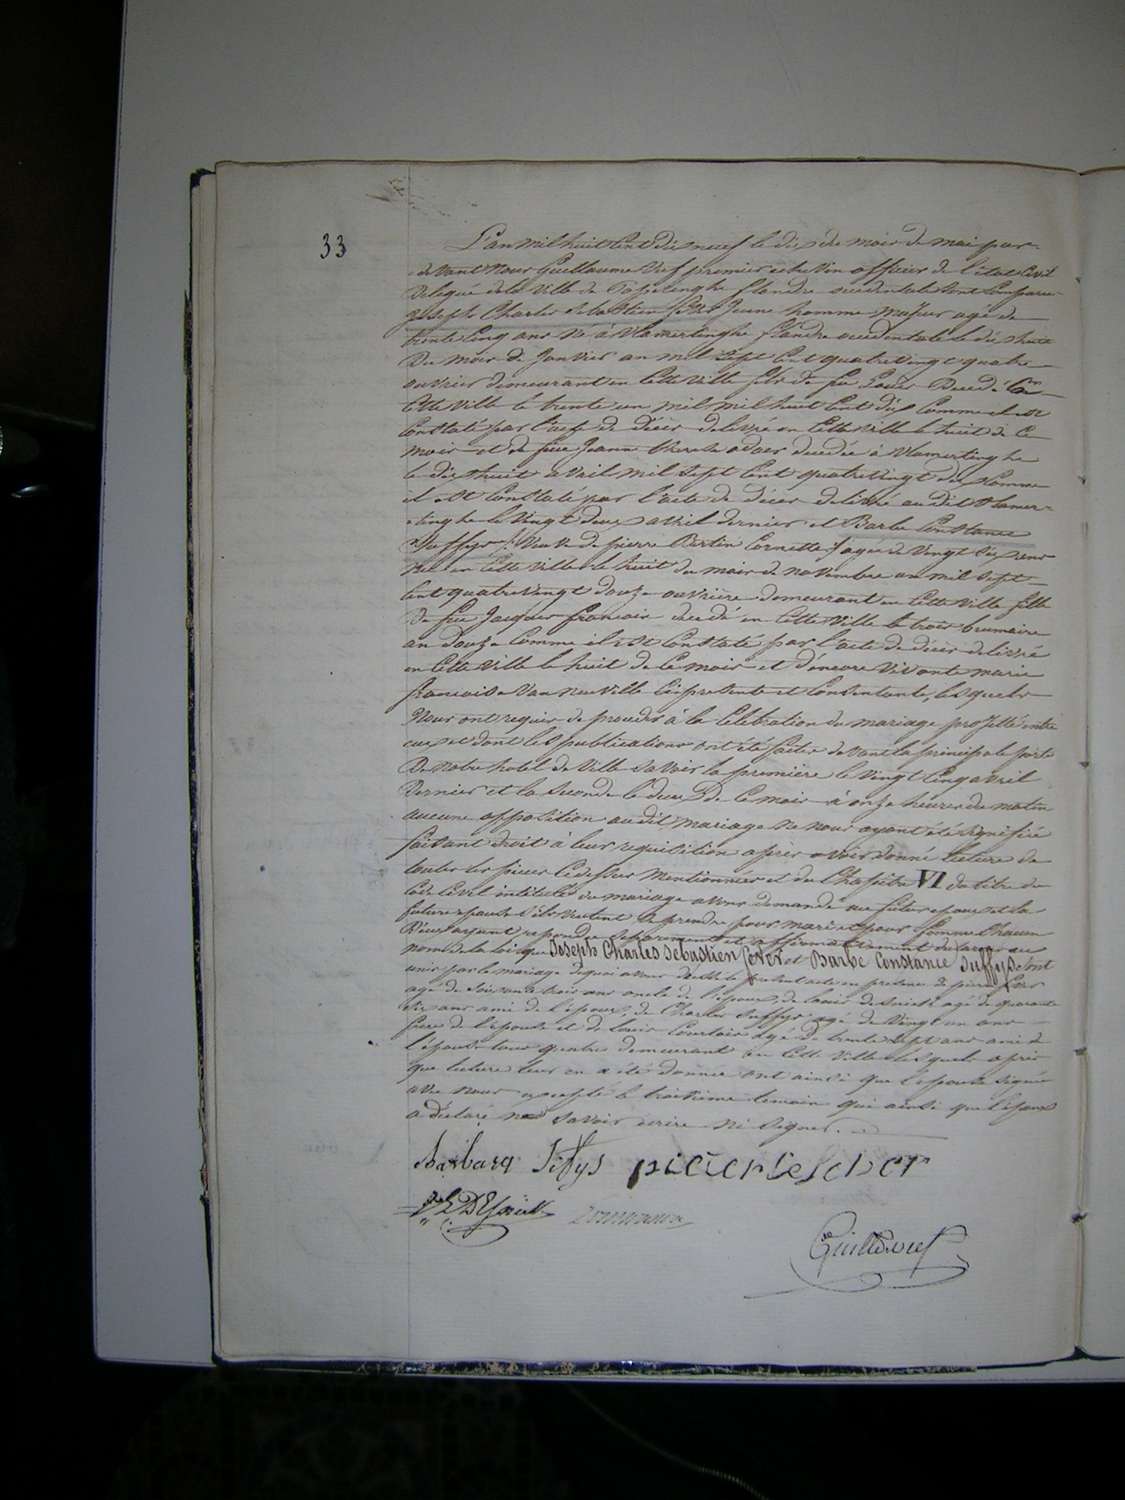 33
L'an mil huit Cent Dix neuf le dix du mois de mai par
devant nous Guillaume Vuf premier echevin officier de l'état Civil
Delegué de la Ville de Poperinghe flandre occidentale sont Comparus
Joseph Charles Sebastien Jeune homme Majeur agé de
trente Cinq ans né à Vlamertinghe flandre occidentale le dix huit
Du mois de Janvier an mil Sept Cent quatre vingt quatre
ouvrier demeurant en Cette Ville fils de feu Louis Decedé en
Cette Ville le trente un mil huit Cent dix Comme il est
Constaté par l'acte de décès delivré en Cette Ville le huit de Ce
mois et de feue Jeanne therese decedée à Vlamertinghe
le dix huit avril mil Sept Cent quatre vingt Comme
il est Constaté par l'acte de deces delivré au dit Vlamer-
tinghe le Vingt deux avril dernier et Barbe Constance
Suffys Veuve de pierre Bertin Cornette agée de Vingt Six ans
née en Cette Ville le huit du mois de novembre an mil Sept
Cent quatre vingt douze ouvrière demeurant en Cette Ville fille
De feu Jacques francois decedé en Cette Ville le trois brumaire
an douze Comme il est Constaté par l'acte de décès delivré
en Cette Ville le huit de Ce mois et d'encore Vivante marie
francoise Van neuville Ci presente et Consentante, lesquels
Nous ont requis de proceder à la Celebration du mariage projetté entre
eux et dont les publications ont été faites devant la principale porte
De notre hotel de Ville Savoir la première le Vingt Cinq avril
Dernier et la Seconde le deux De Ce mois à onze heures du matin
aucune opposition au dit mariage Ne nous ayant été Signifiée
faisant droit à leur requisition après avoir donné lecture de
toutes les pieces Cidessus Mentionnées et du Chapitre VI du titre du
Code Civil intitulé du mariage avons demandé au futur epoux et la
future epouse S'ils veulent Se prendre pour mari et pour femme Chacun
D'eux ayant repondu Separement et affirmativement au
nom de la loi que Joseph Charles Sebastien Cever et Barbe Constance Suffys Sont
unis par le mariage Dequoi avons dressé le present acte en presence de pierre
agé de Soixante trois ans oncle de l'epoux, de Louis agé de quarante
Six ans ami de l'epoux, de Charles Suffys agé de Vingt un ans
frere de l'epouse et de Louis Courtois agé De trente Sept ans ami de
l'epouse tous quatre demeurant en Cette Ville lesquels après
que lecture leur en a été donnée ont ainsi que l'epouse Signé
avec nous excepté le troisième temoin qui ainsi que l'epoux
a declaré ne Savoir ecrire ni Signer.
Barbara Sifys
Guill Vuef